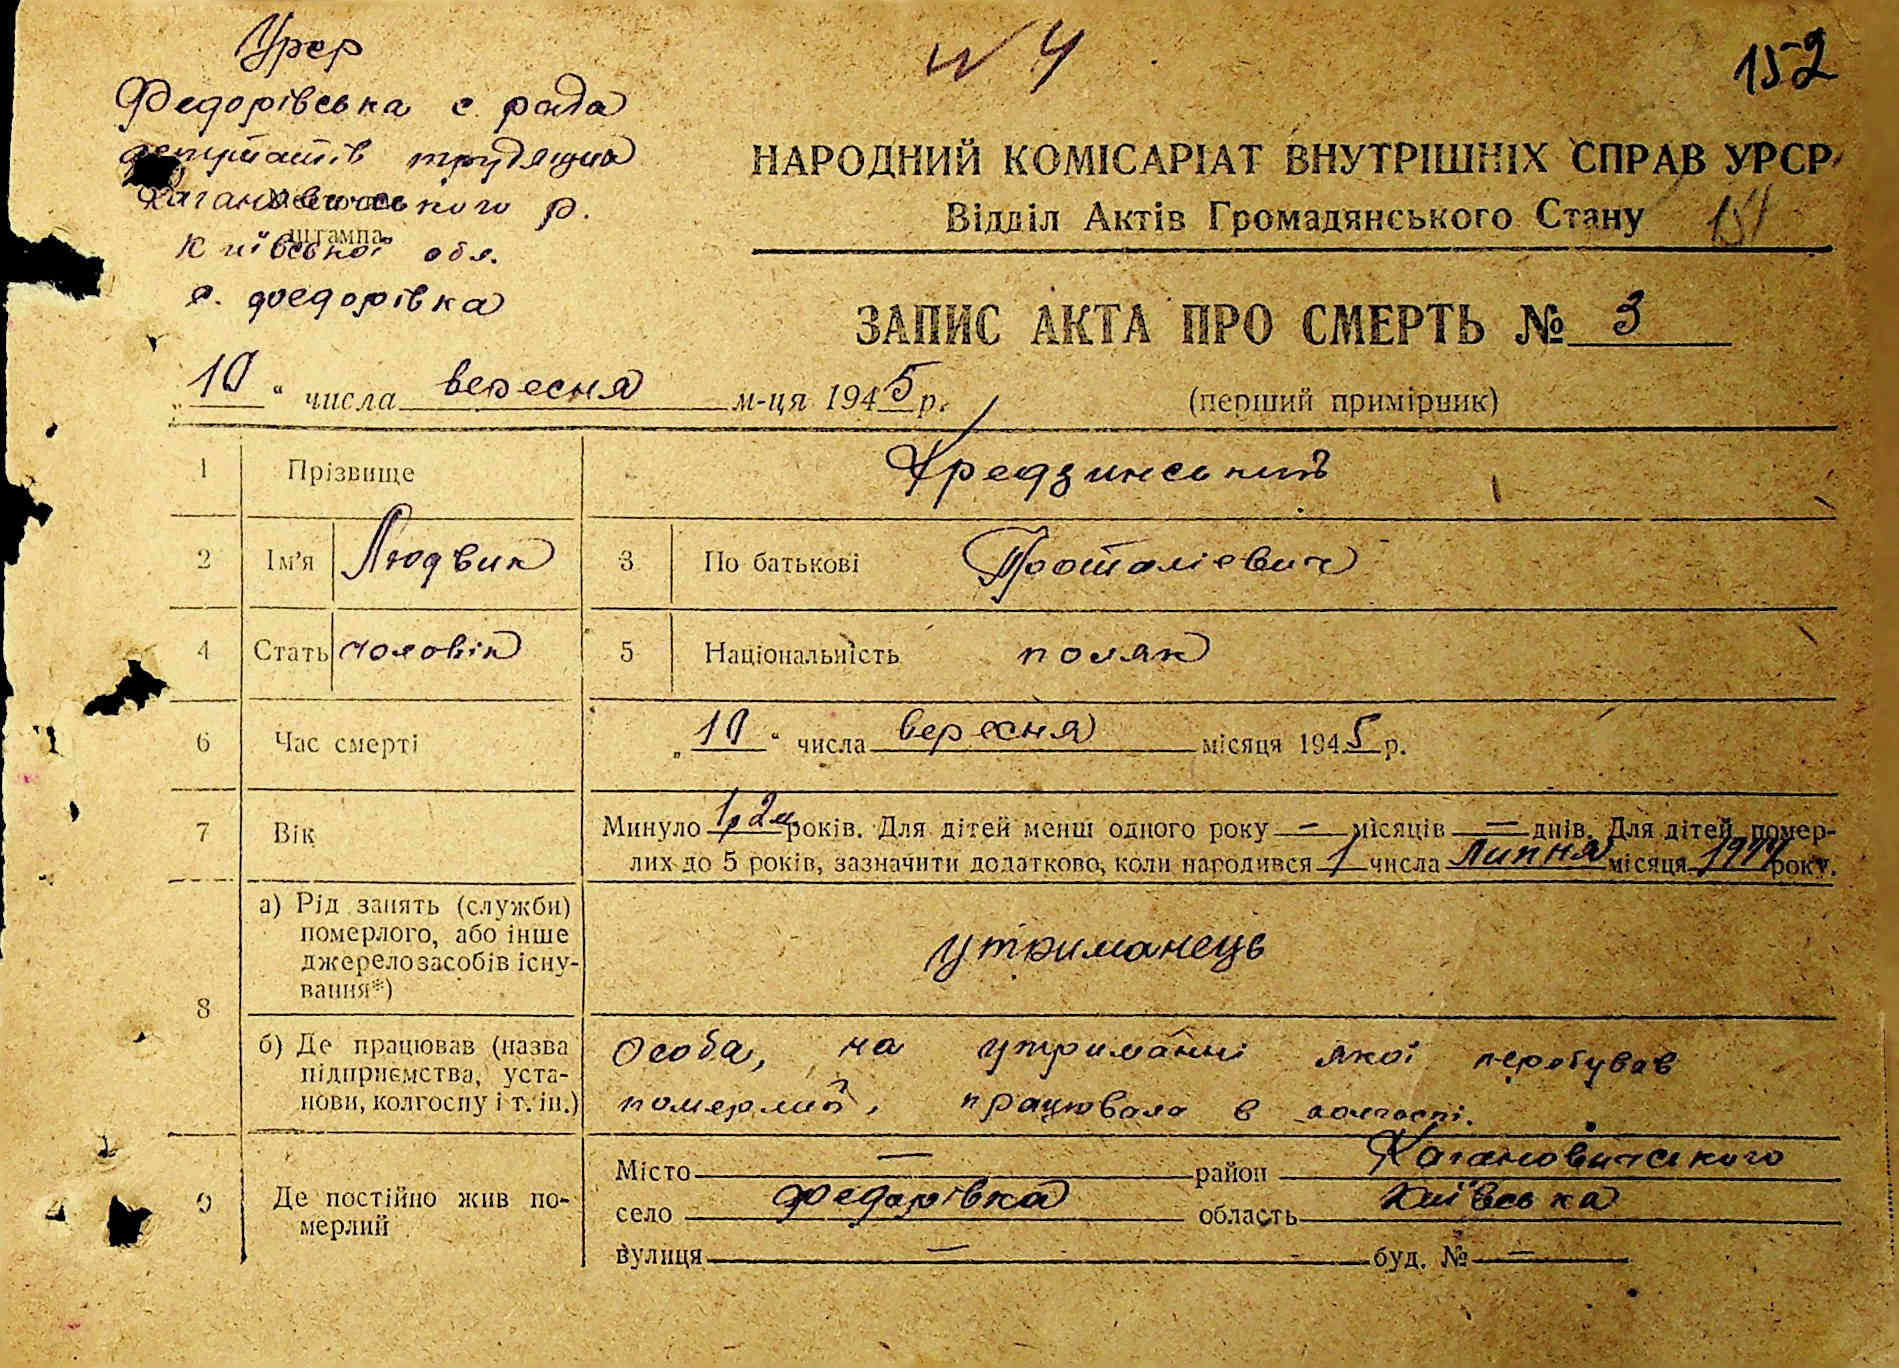 Урср
№ 4
152
Федорівська с. рада
депутатів трудящих
Кагановичського р.
Місце для
штампа
Київської обл.
с. Федорівка
НАРОДНИЙ КОМІСАРІАТ ВНУТРІШНІХ СПРАВ УРСР
Відділ Актів Громадянського Стану 151
ЗАПИС АКТА ПРО СМЕРТЬ № 3
„10“ числа вересня м-ця 1945 р.
(перший примірник)
1 Прізвище Кредзинський
2 Ім'я Людвик 3 По батькові
4 Стать чоловік 5 Національність поляк
6 Час смерті „10“ числа вересня місяця 1945 р.
7 Вік Минуло 1р 2м років. Для дітей менш одного року — місяців — днів. Для дітей, помер-
лих до 5 років, зазначити додатково, коли народився 1 числа Липня місяця 1944 року.
8 а) Рід занять (служби)
померлого, або інше
джерело засобів існу-
вання*)
утриманець
б) Де працював (назва
підприємства, уста-
нови, колгоспу і т. ін.)
Особа, на утриманні якої перебував
померлий, працювала в колгоспі.
9 Де постійно жив по-
мерлий
Місто — район Кагановичського
село Федорівка область Київська
вулиця — буд. № —